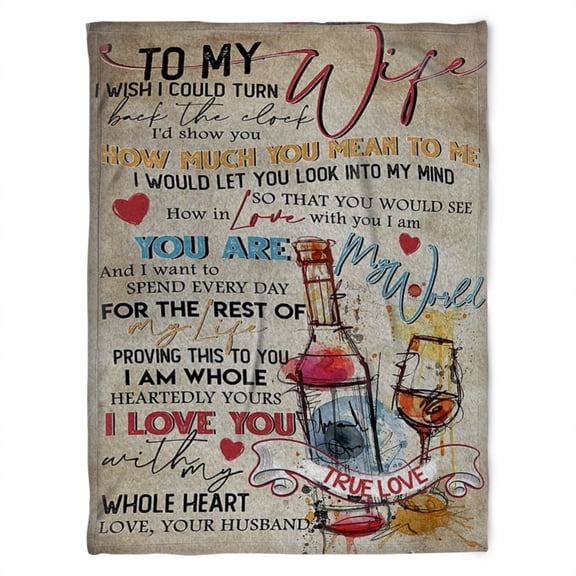 TO MY Wife
I WISH I COULD TURN
back the clock
I'd show you
HOW MUCH YOU MEAN TO ME
I WOULD LET YOU LOOK INTO MY MIND
SO THAT YOU WOULD SEE
How in Love with you I am
YOU ARE My World
And I want to
SPEND EVERY DAY
FOR THE REST OF
my Life
PROVING THIS TO YOU
I AM WHOLE
HEARTEDLY YOURS
I LOVE YOU
with my
WHOLE HEART
LOVE, YOUR HUSBAND
TRUE LOVE